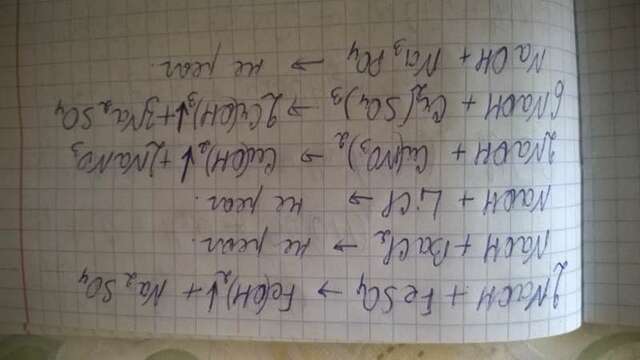 2NaOH + FeSO₄ → Fe(OH)₂↓ + Na₂SO₄
NaOH + BaCl₂ → не реаг.
NaOH + LiCl → не реаг.
2NaOH + Cu(NO₃)₂ → Cu(OH)₂↓ + 2NaNO₃
6NaOH + Cr₂(SO₄)₃ → 2Cr(OH)₃↓ + 3Na₂SO₄
NaOH + Na₃PO₄ → не реаг.